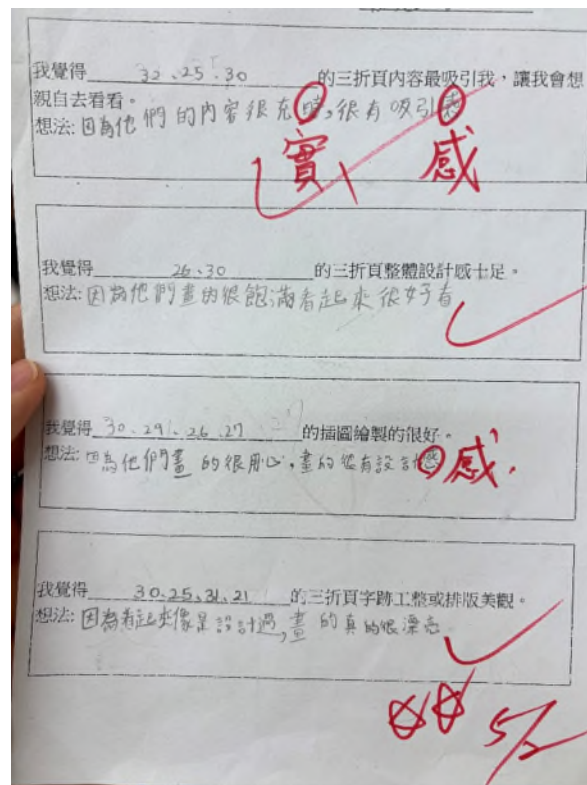 我覺得 32、25、30 的三折頁內容最吸引我,讓我會想
親自去看看。
想法:因為他們的內容很充時,很有吸引
實 感
我覺得 26、30 的三折頁整體設計感十足。
想法:因為他們畫的很飽滿看起來很好看
我覺得 30、29、26、27 的插圖繪製的很好。
想法:因為他們畫的很用心,畫的很有設計
感
我覺得 30、25、31、21 的三折頁字跡工整或排版美觀。
想法:因為看起來像是設計過,畫的真的很漂亮
5/2